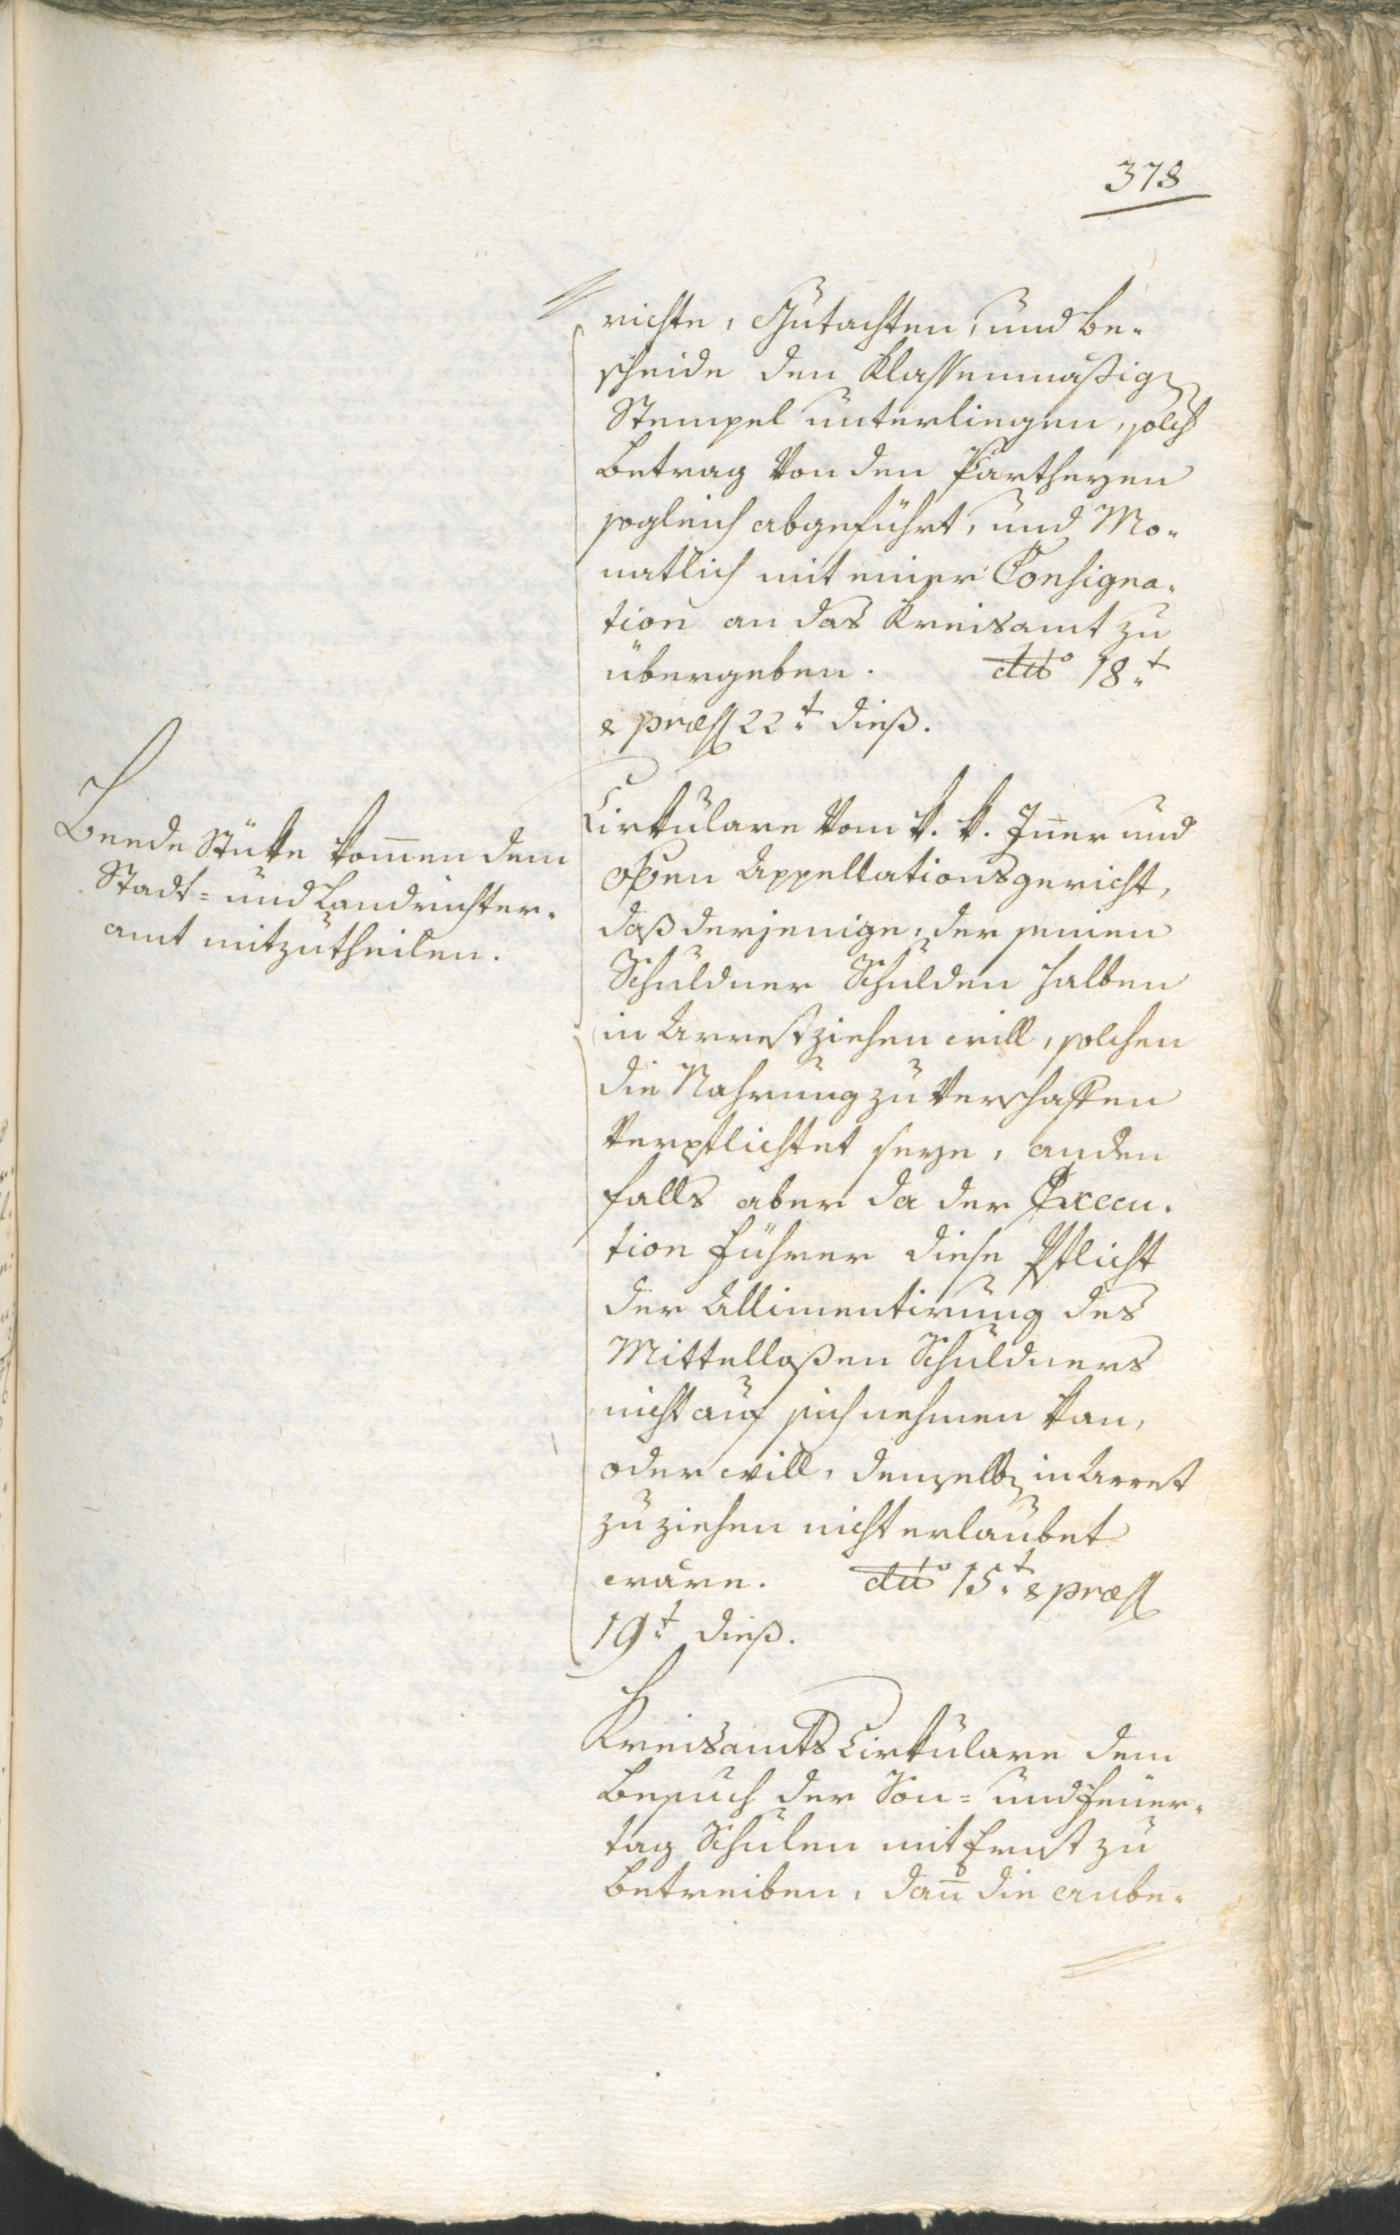 378
richte, Gutachten, und be-
scheide den Klassenmäßig
Stempel unterliegen, solch
betrag von den Partheyen
sogleich abgeführt, und Mo-
natlich mit einer Consigna-
tion an das Kreisamt zu
übergeben. dto 18t
& præs 22t dieß.
Beede Stükke kom̄en dem
Stadt- und Landrichter-
amt mitzutheilen.
Cirkulare vom k. k. Jn̄er und
obern Appellationsgericht,
daß derjenige, der seinen
Schuldner Schulden halben
in Arrest ziehen will, solchen
die Nahrung zu verschaffen
verpflichtet seye, anden
falls aber da der Execu-
tion führer diese Pflicht
der Allimentirung des
Mittelloßen Schuldners
nicht auf sich nehmen kan,
oder will, denselb in Arrest
zu ziehen nicht erlaubet
wäre. dto 15t & præs
19t dieß.
Kreisamts Cirkulare dem
besuch der Son- und Feuer-
tag Schulen mit Ernst zu
betreiben, dan̄ die anbe-